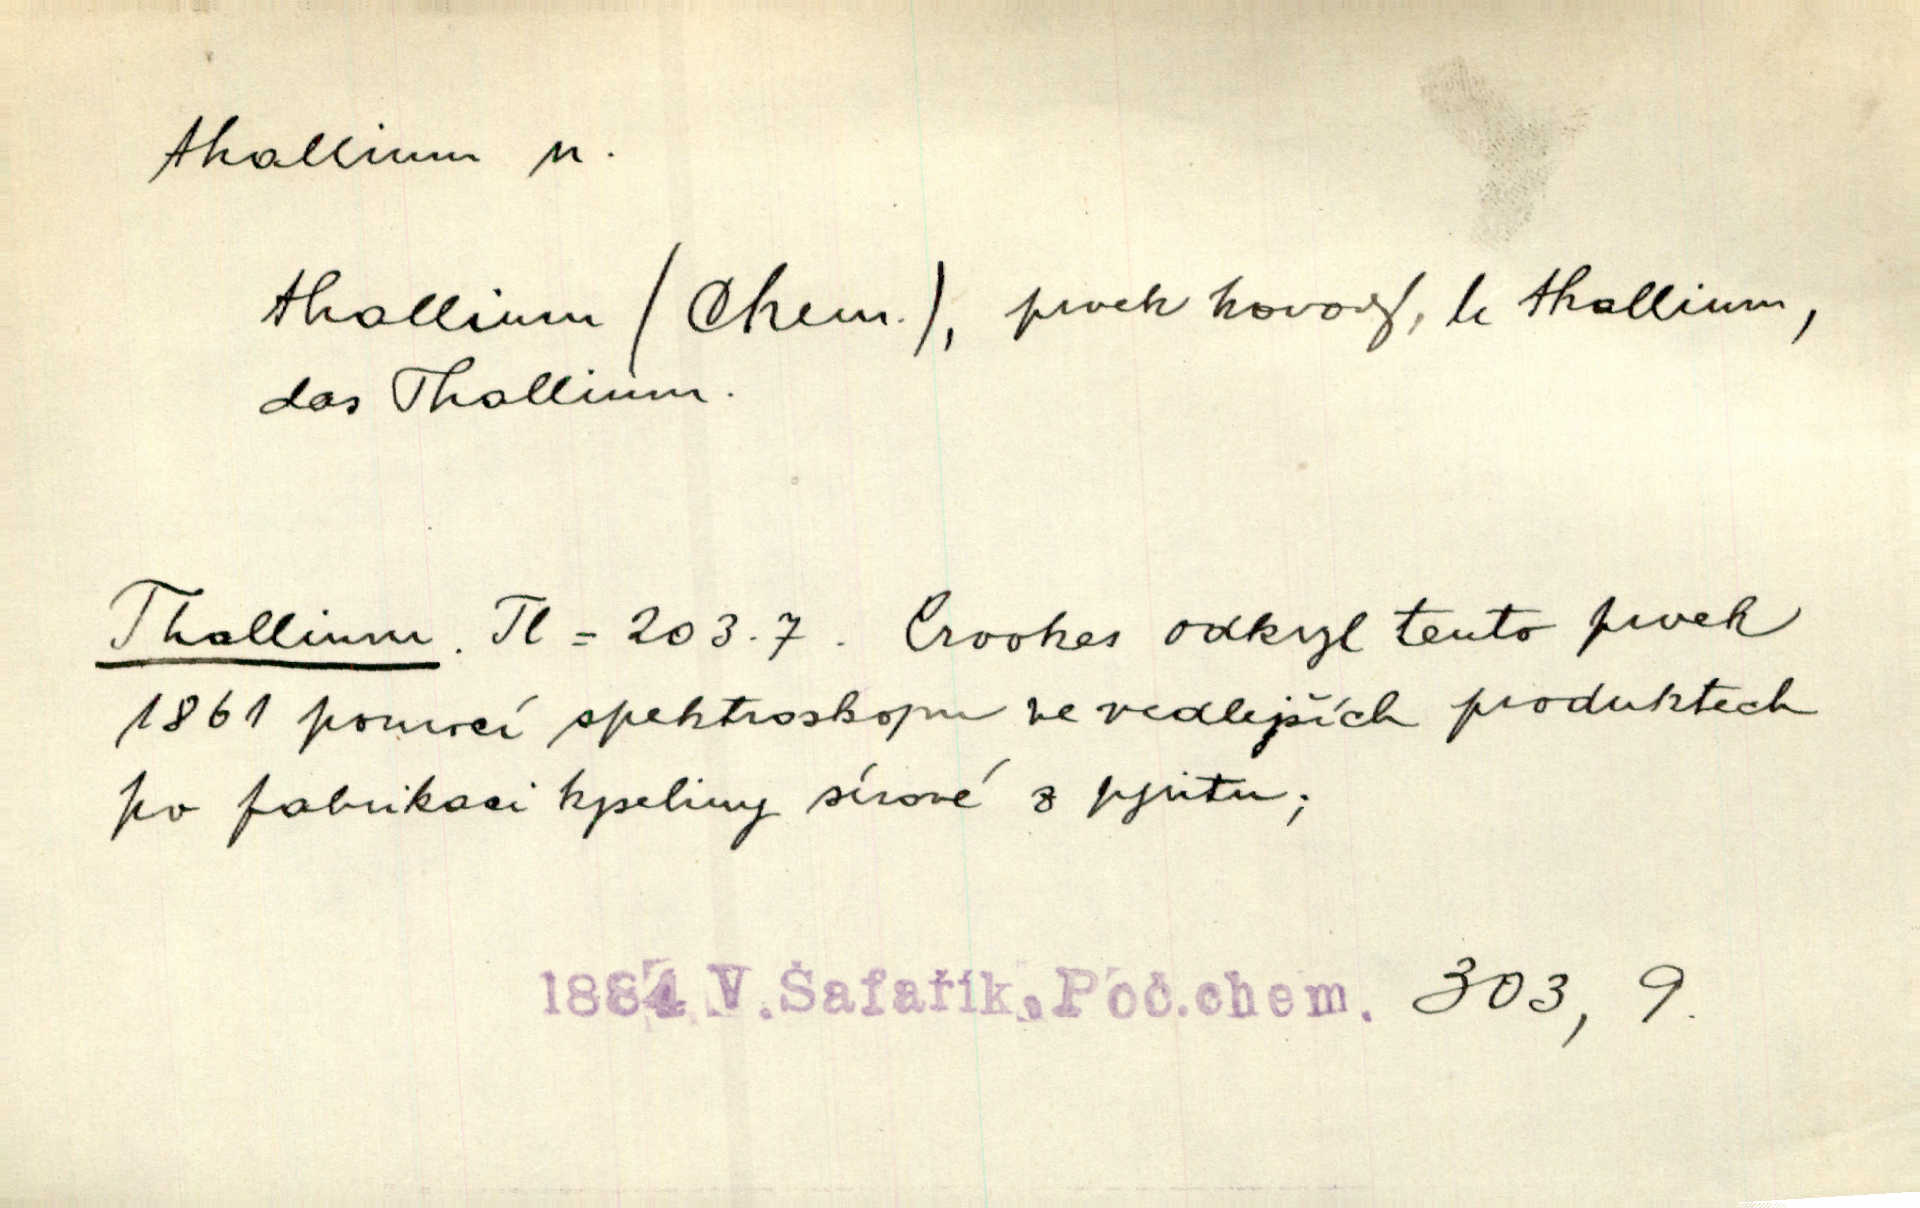 thallium n.
thallium (Chem.), prvek kovový, le thallium,
das Thallium.
Thallium. Tl = 203.7. Crookes odkryl tento prvek
1861 pomocí spektroskopu ve vedlejších produktech
po fabrikaci kyseliny sírové z pyritu;
1884 V. Šafařík, Poč.chem. 303, 9.